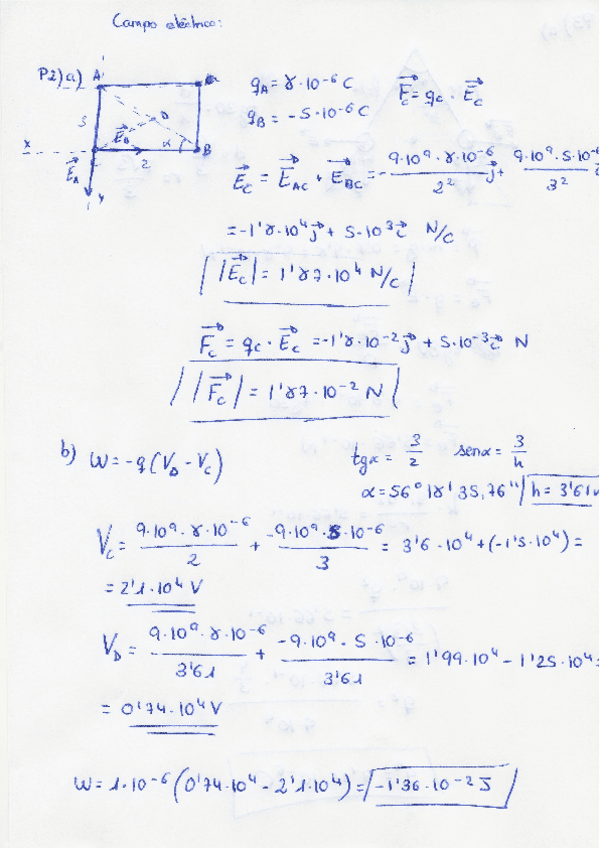 Campo eléctrico:
P2) a) A
q_A = 8·10⁻⁶ C
F⃗_c = q_c · E⃗_c
q_B = -5·10⁻⁶ C
5 D E⃗_B α B
x 2
E⃗_A y
E⃗_c = E⃗_Ac + E⃗_Bc = - 9·10⁹·8·10⁻⁶ / 2² j⃗ + 9·10⁹·5·10⁻⁶ / 3² i⃗
= -1'8·10⁴ j⃗ + 5·10³ i⃗ N/C
|E⃗_c| = 1'87·10⁴ N/C
F⃗_c = q_c · E⃗_c = -1'8·10⁻² j⃗ + 5·10⁻³ i⃗ N
|F⃗_c| = 1'87·10⁻² N
b) W = -q (V_D - V_C)
tg α = 3/2 sen α = 3/h
α = 56° 18' 35,76" h = 3'61
V_C = 9·10⁹·8·10⁻⁶ / 2 + -9·10⁹·5·10⁻⁶ / 3 = 3'6·10⁴ + (-1'5·10⁴) =
= 2'1·10⁴ V
V_D = 9·10⁹·8·10⁻⁶ / 3'61 + -9·10⁹·5·10⁻⁶ / 3'61 = 1'99·10⁴ - 1'25·10⁴ =
= 0'74·10⁴ V
W = 1·10⁻⁶ (0'74·10⁴ - 2'1·10⁴) = -1'36·10⁻² J